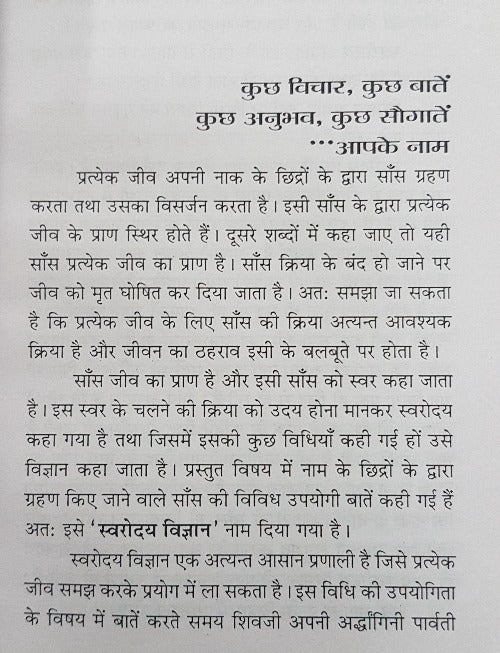 कुछ विचार, कुछ बातें
कुछ अनुभव, कुछ सौगातें
...आपके नाम
प्रत्येक जीव अपनी नाक के छिद्रों के द्वारा साँस ग्रहण
करता तथा उसका विसर्जन करता है। इसी साँस के द्वारा प्रत्येक
जीव के प्राण स्थिर होते हैं। दूसरे शब्दों में कहा जाए तो यही
साँस प्रत्येक जीव का प्राण है। साँस क्रिया के बंद हो जाने पर
जीव को मृत घोषित कर दिया जाता है। अतः समझा जा सकता
है कि प्रत्येक जीव के लिए साँस की क्रिया अत्यन्त आवश्यक
क्रिया है और जीवन का ठहराव इसी के बलबूते पर होता है।
साँस जीव का प्राण है और इसी साँस को स्वर कहा जाता
है। इस स्वर के चलने की क्रिया को उदय होना मानकर स्वरोदय
कहा गया है तथा जिसमें इसकी कुछ विधियाँ कही गई हों उसे
विज्ञान कहा जाता है। प्रस्तुत विषय में नाम के छिद्रों के द्वारा
ग्रहण किए जाने वाले साँस की विविध उपयोगी बातें कही गई हैं
अतः इसे 'स्वरोदय विज्ञान' नाम दिया गया है।
स्वरोदय विज्ञान एक अत्यन्त आसान प्रणाली है जिसे प्रत्येक
जीव समझ करके प्रयोग में ला सकता है। इस विधि की उपयोगिता
के विषय में बातें करते समय शिवजी अपनी अर्द्धांगिनी पार्वती